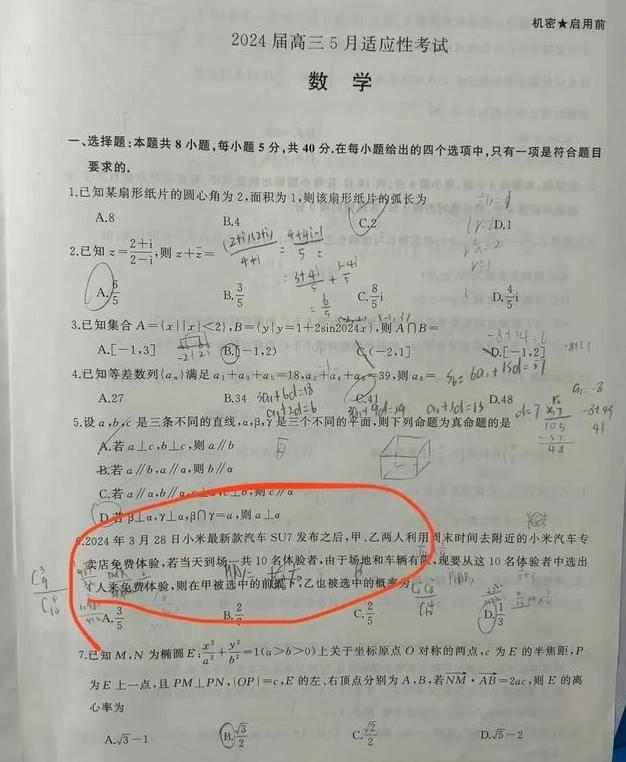 机密★启用前
2024 届高三 5 月适应性考试
数 学
一、选择题:本题共 8 小题,每小题 5 分,共 40 分.在每小题给出的四个选项中,只有一项是符合题目
要求的.
1.已知某扇形纸片的圆心角为 2,面积为 1,则该扇形纸片的弧长为
A.8 B.4 C.2 D.1
2.已知 z=\frac{2+i}{2-i},则 z+\bar{z}=
A.\frac{6}{5} B.\frac{3}{5} C.\frac{8}{5}i D.\frac{4}{5}i
3.已知集合 A={x||x|<2},B={y|y=1+2sin2024x},则 A∩B=
A.[-1,3] B.[-1,2) C.(-2,1] D.[-1,2]
4.已知等差数列{aₙ}满足 a₁+a₃+a₅=18,a₂+a₄+a₆=39,则 a₈=
A.27 B.34 C.41 D.48
5.设 a,b,c 是三条不同的直线,α,β,γ 是三个不同的平面,则下列命题为真命题的是
A.若 a⊥c,b⊥c,则 a∥b
B.若 a∥b,a∥α,则 b∥α
C.若 a∥α,b∥α,c⊥a,c⊥b,则 c∥α
D.若 β⊥α,γ⊥α,β∩γ=a,则 a⊥α
6.2024 年 3 月 28 日小米最新款汽车 SU7 发布之后,甲、乙两人利用周末时间去附近的小米汽车专
卖店免费体验,若当天到场一共 10 名体验者,由于场地和车辆有限,现要从这 10 人体验者中选出
人来免费体验,则在甲被选中的前提下,乙也被选中的概率为
A.\frac{3}{5} B. C.\frac{2}{5} D.\frac{1}{3}
7.已知 M,N 为椭圆 E:\frac{x²}{a²}+\frac{y²}{b²}=1(a>b>0)上关于坐标原点 O 对称的两点,c 为 E 的半焦距,P
为 E 上一点,且 PM⊥PN,|OP|=c,E 的左、右顶点分别为 A,B,若\overrightarrow{NM}·\overrightarrow{AB}=2ac,则 E 的离
心率为
A.√3-1 B.\frac{√3}{2} C.\frac{√2}{2} D.√5-2